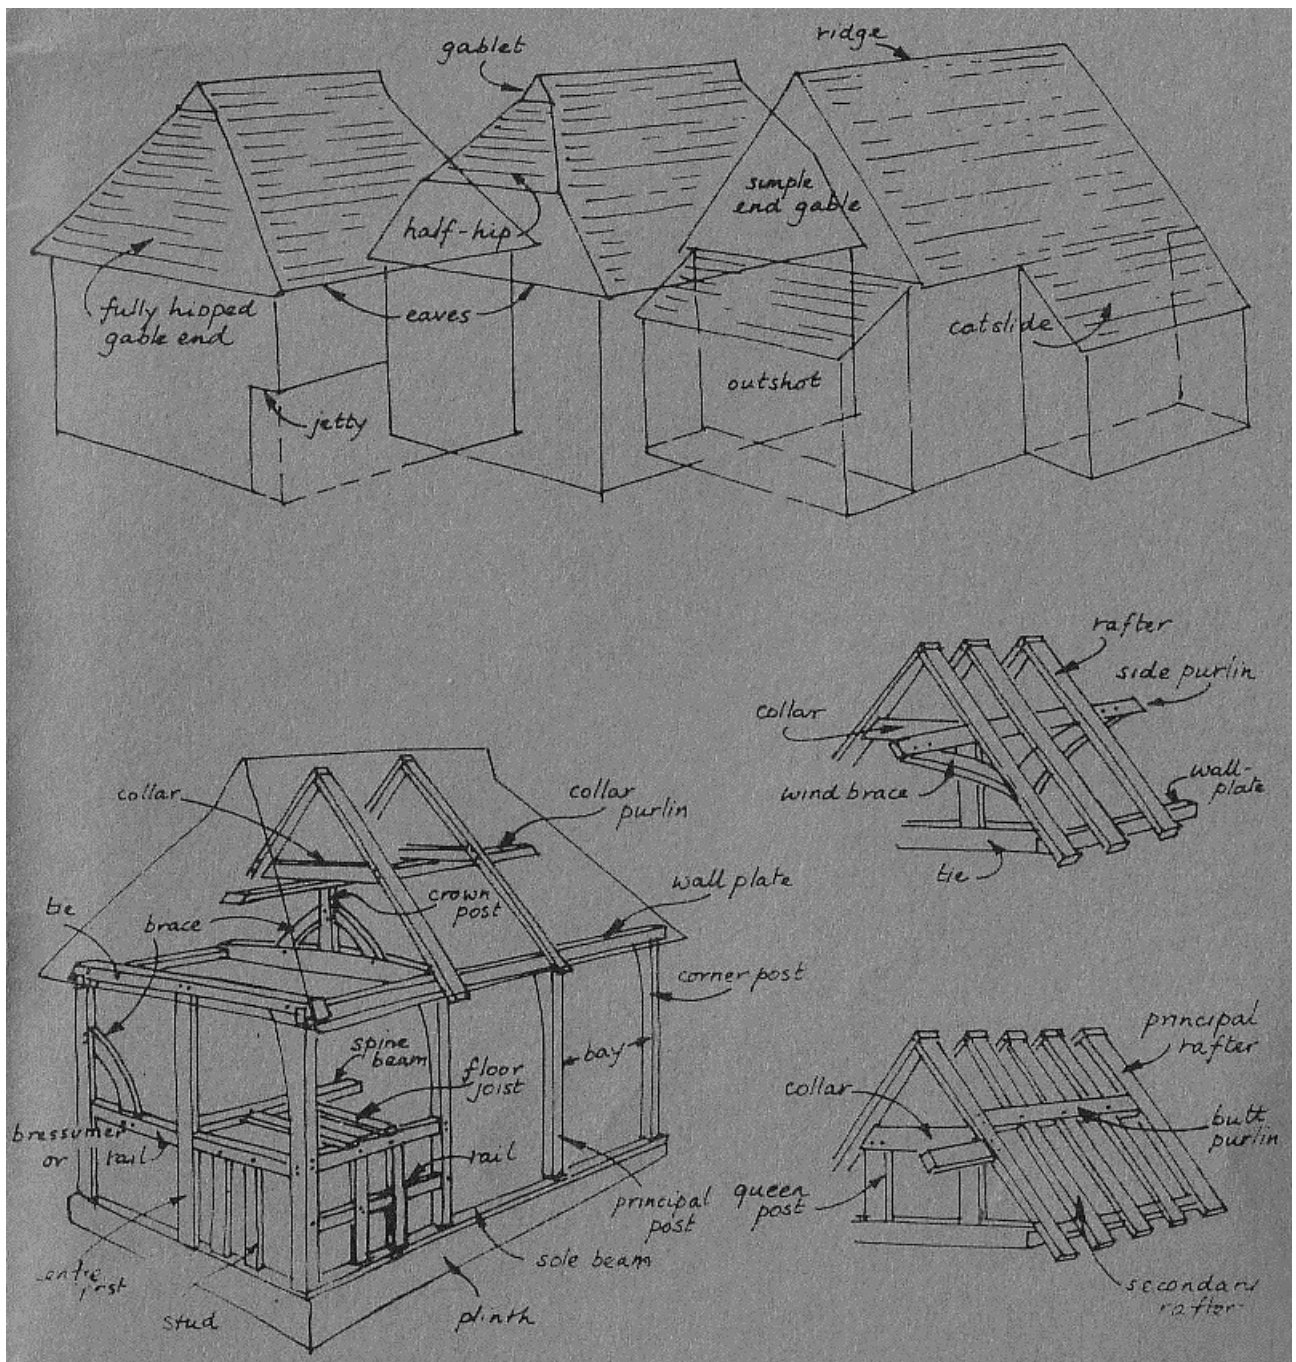 gablet
ridge
simple
end gable
half-hip
fully hipped
gable end
eaves
catslide
outshot
jetty
rafter
side purlin
collar
wind brace
wall-
plate
tie
collar
collar
purlin
crown
post
wall plate
tie
brace
corner post
spine
beam
floor
joist
bay
bressumer
or rail
rail
principal
post
sole beam
stud
plinth
principal
rafter
collar
butt
purlin
queen
post
rafter